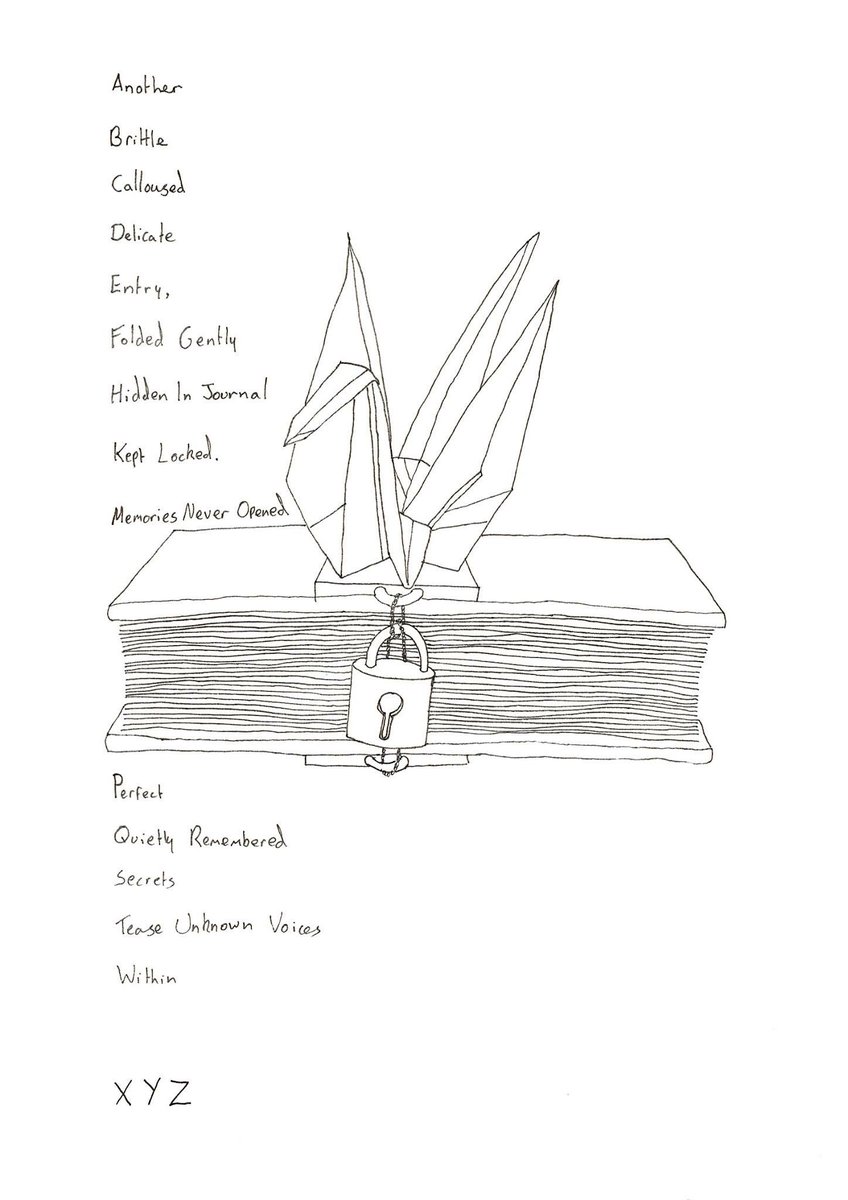 Another
Brittle
Calloused
Delicate
Entry,
Folded Gently
Hidden In Journal
Kept Locked.
Memories Never Opened
Perfect
Quietly Remembered
Secrets
Tease Unknown Voices
Within
X Y Z